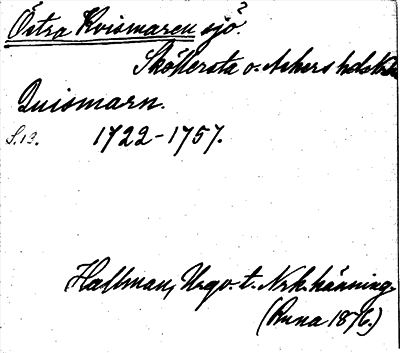 Östra Kvismaren sjö?
Sköllersta o. Askers hdskn
Quismarn.
S. 13. 1722-1757.
Hallman, Urgv. t. Nrk. känning.
(Runa 1876.)